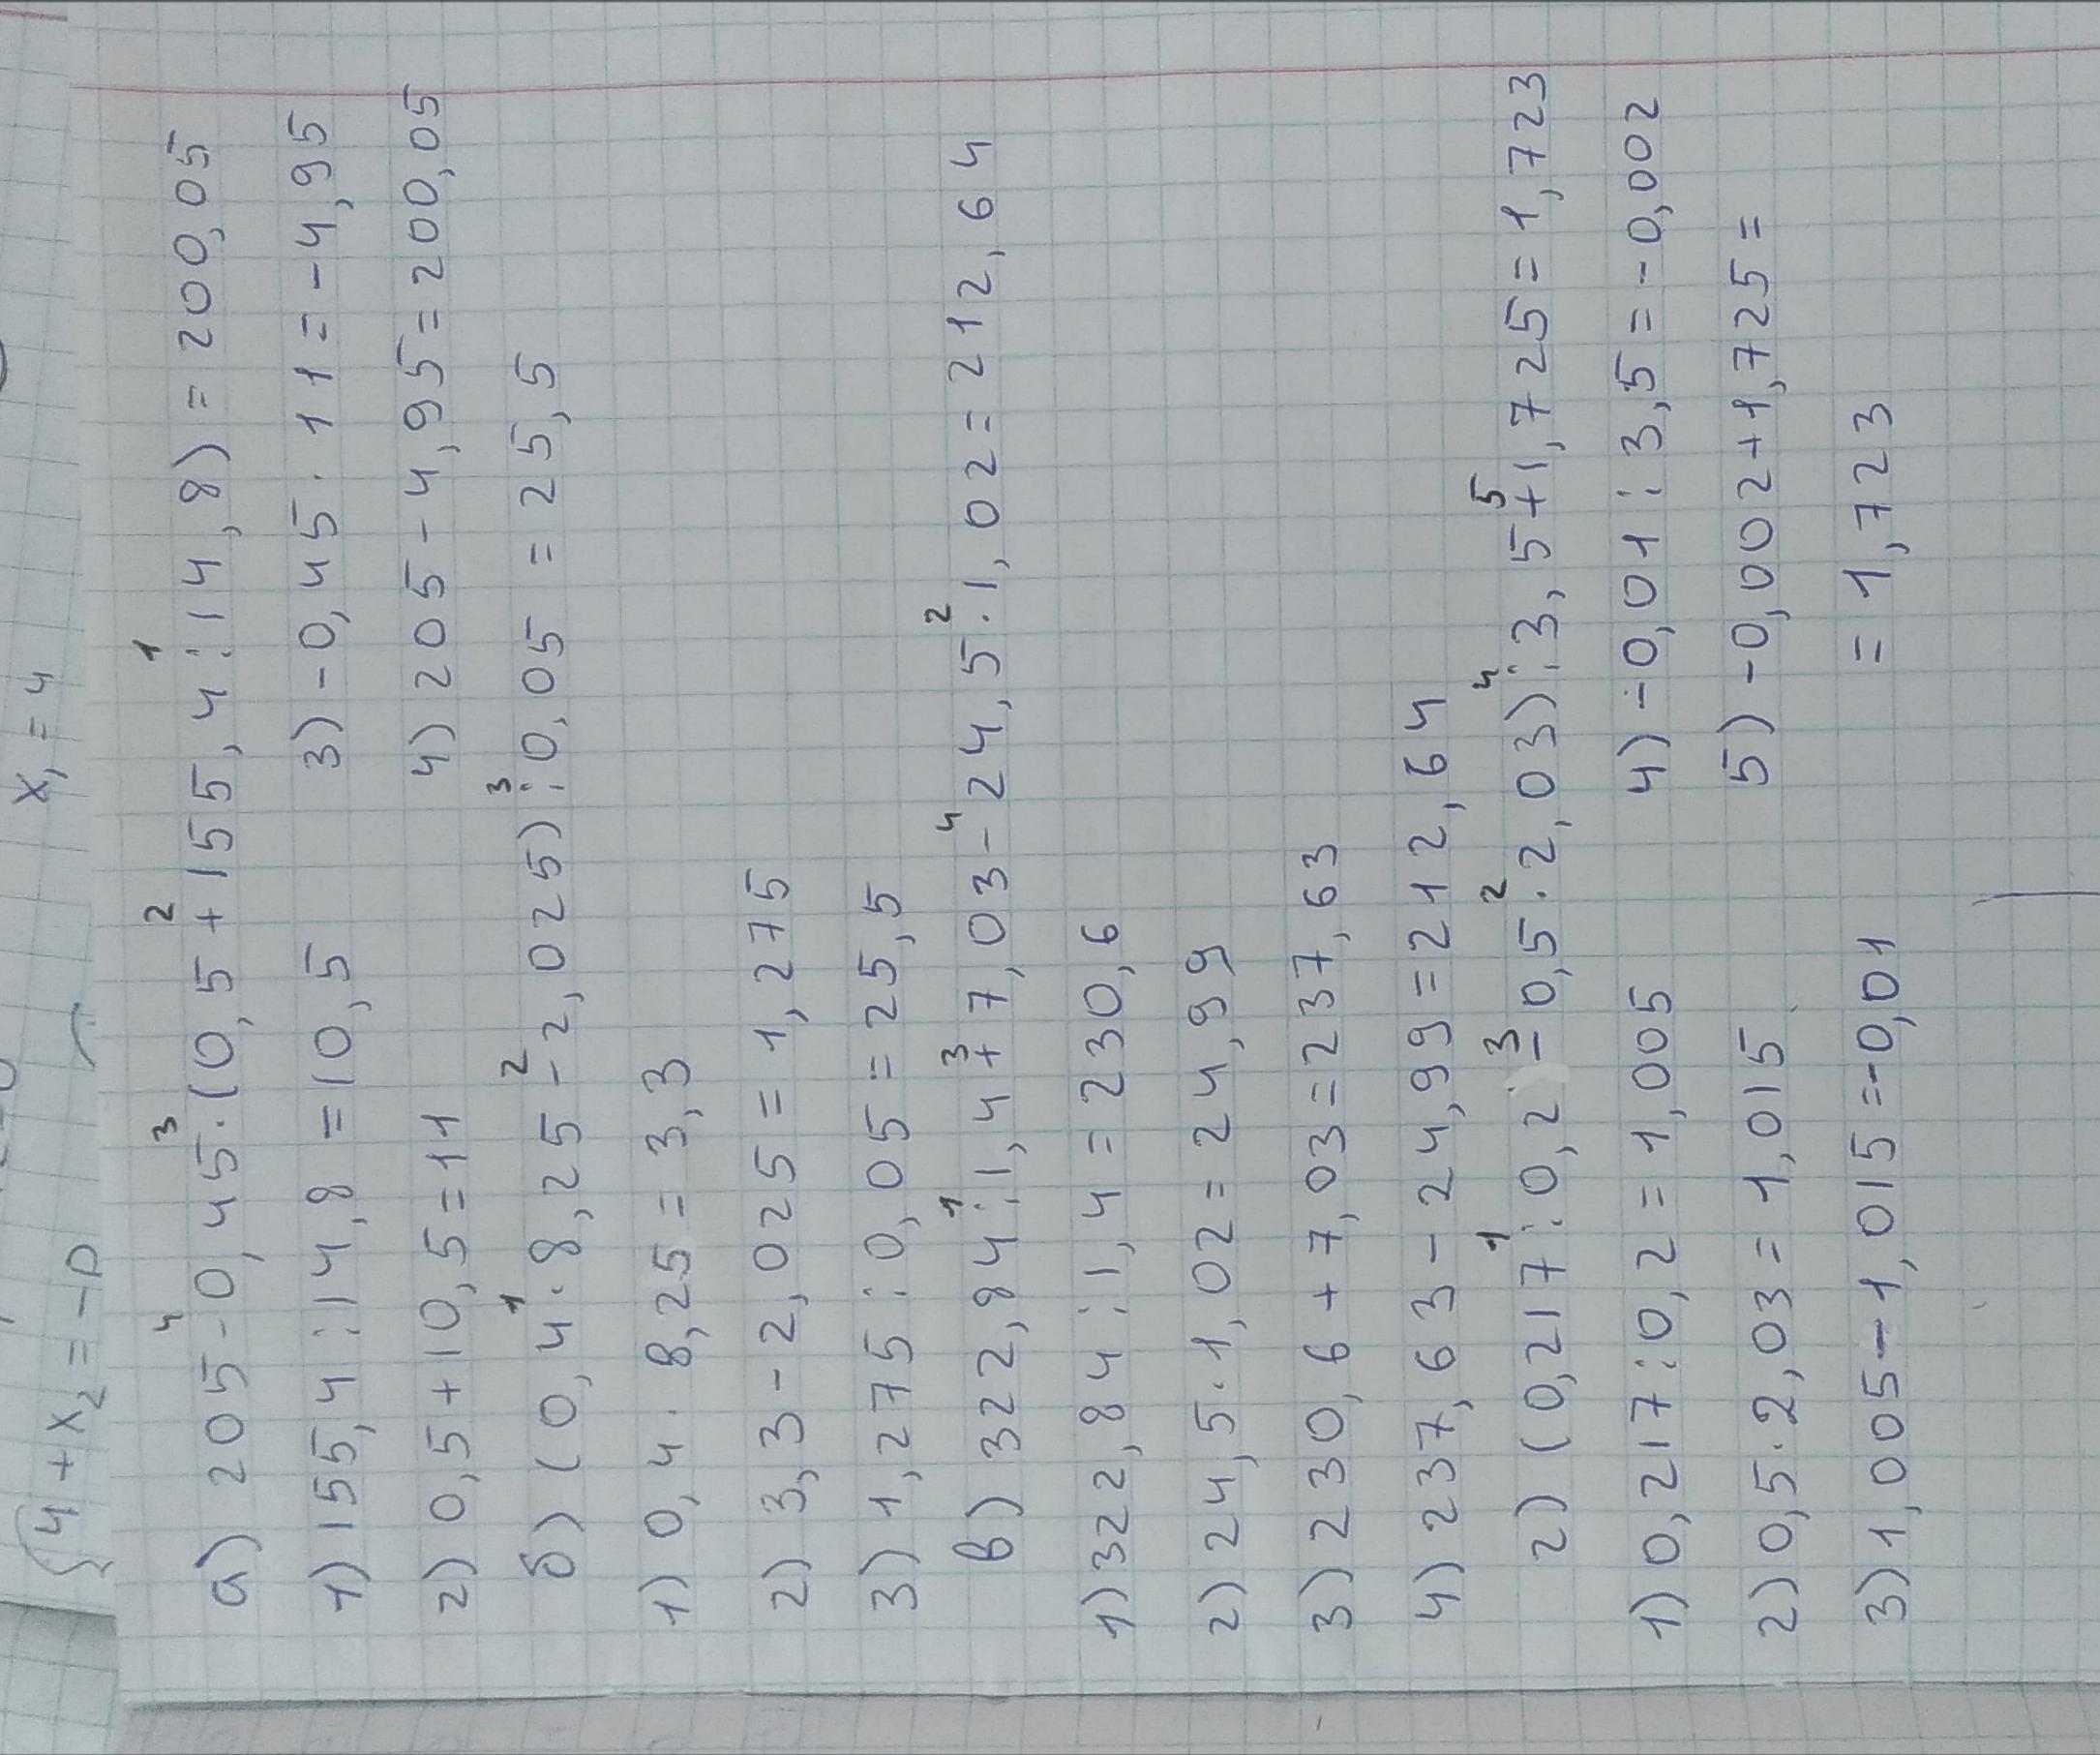 {4 + x₂ = -p x₁ = 4
а) 205 -⁴ 0,45 ·³ (0,5 +² 155,4 :¹ 14,8) = 200,05
1) 155,4 : 14,8 = 10,5 3) -0,45 · 11 = -4,95
2) 0,5 + 10,5 = 11 4) 205 - 4,95 = 200,05
б) (0,4 ·¹ 8,25 -² 2,025) :³ 0,05 = 25,5
1) 0,4 · 8,25 = 3,3
2) 3,3 - 2,025 = 1,275
3) 1,275 : 0,05 = 25,5
в) 322,84 :¹ 1,4 +³ 7,03 -⁴ 24,5 ·² 1,02 = 212,64
1) 322,84 : 1,4 = 230,6
2) 24,5 · 1,02 = 24,99
3) 230,6 + 7,03 = 237,63
4) 237,63 - 24,99 = 212,64
г) (0,217 :¹ 0,2 -³ 0,5 ·² 2,03) :⁴ 3,5 +⁵ 1,725 = 1,723
1) 0,217 : 0,2 = 1,005 4) -0,01 : 3,5 = -0,002
2) 0,5 · 2,03 = 1,015 5) -0,002 + 1,725 =
3) 1,005 - 1,015 = -0,01 = 1,723